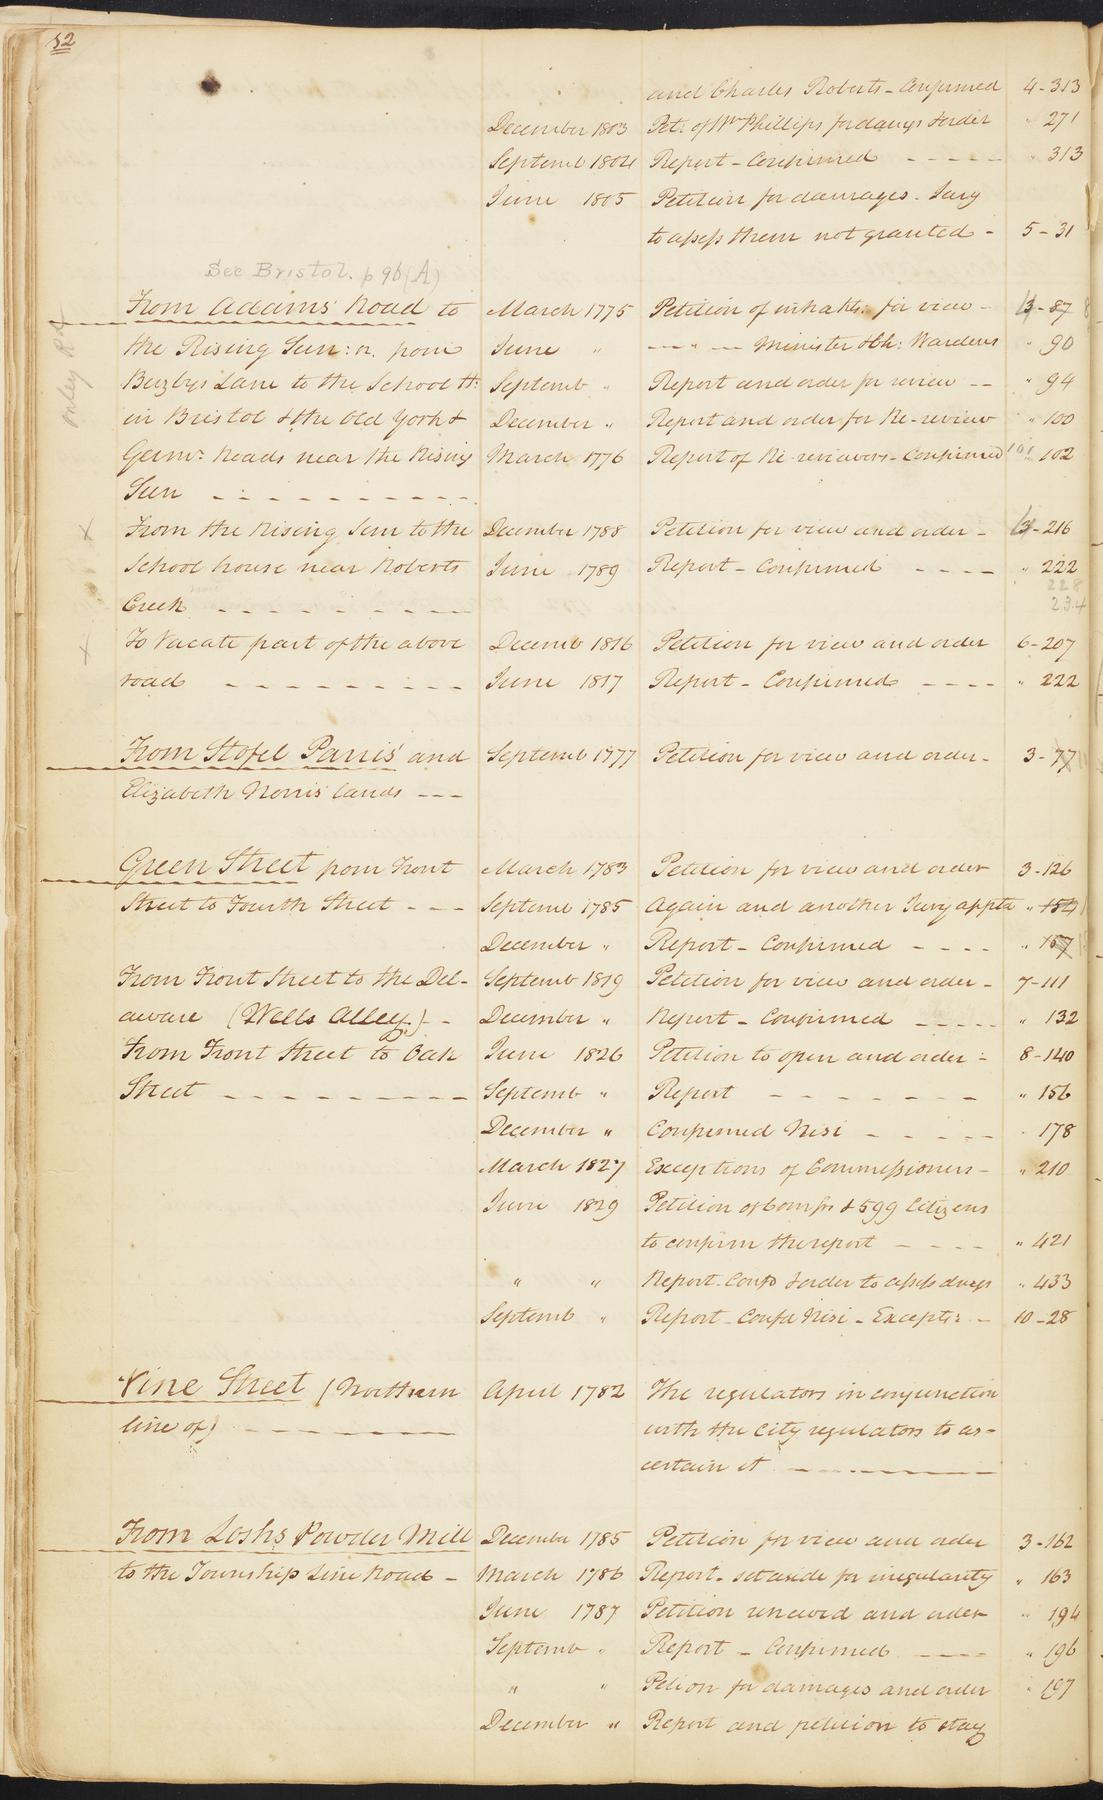 52
and Charles Roberts - Confirmed 4-313
December 1803 Pet: of Wm Phillips for damgs & order " 271
Septemb 1804 Report - Confirmed - - - - - " 313
June 1805 Petition for damages. Jury
to assess them not granted - 5-31
See Bristol. p 96 (A)
From Adams' Road to March 1775 Petition of inhabts: for view - 3-87
the Rising Sun: or, from June " — " — Minister & Ch: Wardens " 90
Busbys Lane to the School H: Septemb " Report and order for review - - " 94
in Bristol & the Old York & December " Report and order for Re-review " 100
Germn: Roads near the Rising March 1776 Report of Re-reviewers - Confirmed 101 " 102
Sun - - - - - - - - - -
onley Rd
From the Rising Sun to the December 1788 Petition for view and order - 3-216
School house near Roberts June 1789 Report - Confirmed - - - - " 222
228
Creek - - - - - - - - 234
To Vacate part of the above Decemb 1816 Petition for view and order 6-207
road - - - - - - - - - June 1817 Report - Confirmed - - - - " 222
From Stofel Parris' and Septemb 1777 Petition for view and order - 3-77
Elizabeth Norris' lands - - -
Green Street from Front March 1783 Petition for view and order 3-126
Street to Fourth Street - - - Septemb 1785 Again and another Jury apptd " 154
December " Report - Confirmed - - - - " 157
From Front Street to the Del- Septemb 1819 Petition for view and order - 7-111
aware (Wells Alley) - - December " Report - Confirmed - - - - - " 132
From Front Street to Oak June 1826 Petition to open and order - 8-140
Street - - - - - - - - - Septemb " Report - - - - - - - - " 156
December " Confirmed Nisi - - - - - " 178
March 1827 Exceptions of Commissioners - " 210
June 1829 Petition of Comrs & 599 Citizens
to confirm the report - - - - " 421
" " Report - Confd & order to assess damgs " 433
Septemb " Report - Confd Nisi - Excepts: - 10-28
Vine Street (Northern April 1782 The regulators in conjunction
line of) - - - - - - - with the City regulators to as-
certain it - - - - - - - -
From Loshs Powder Mill December 1785 Petition for view and order 3-162
to the Township Line Road - March 1786 Report - set aside for irregularity " 163
June 1787 Petition renewed and order " 194
Septemb " Report - Confirmed - - - - " 196
" " Petion for damages and order " 197
December " Report and petition to stay